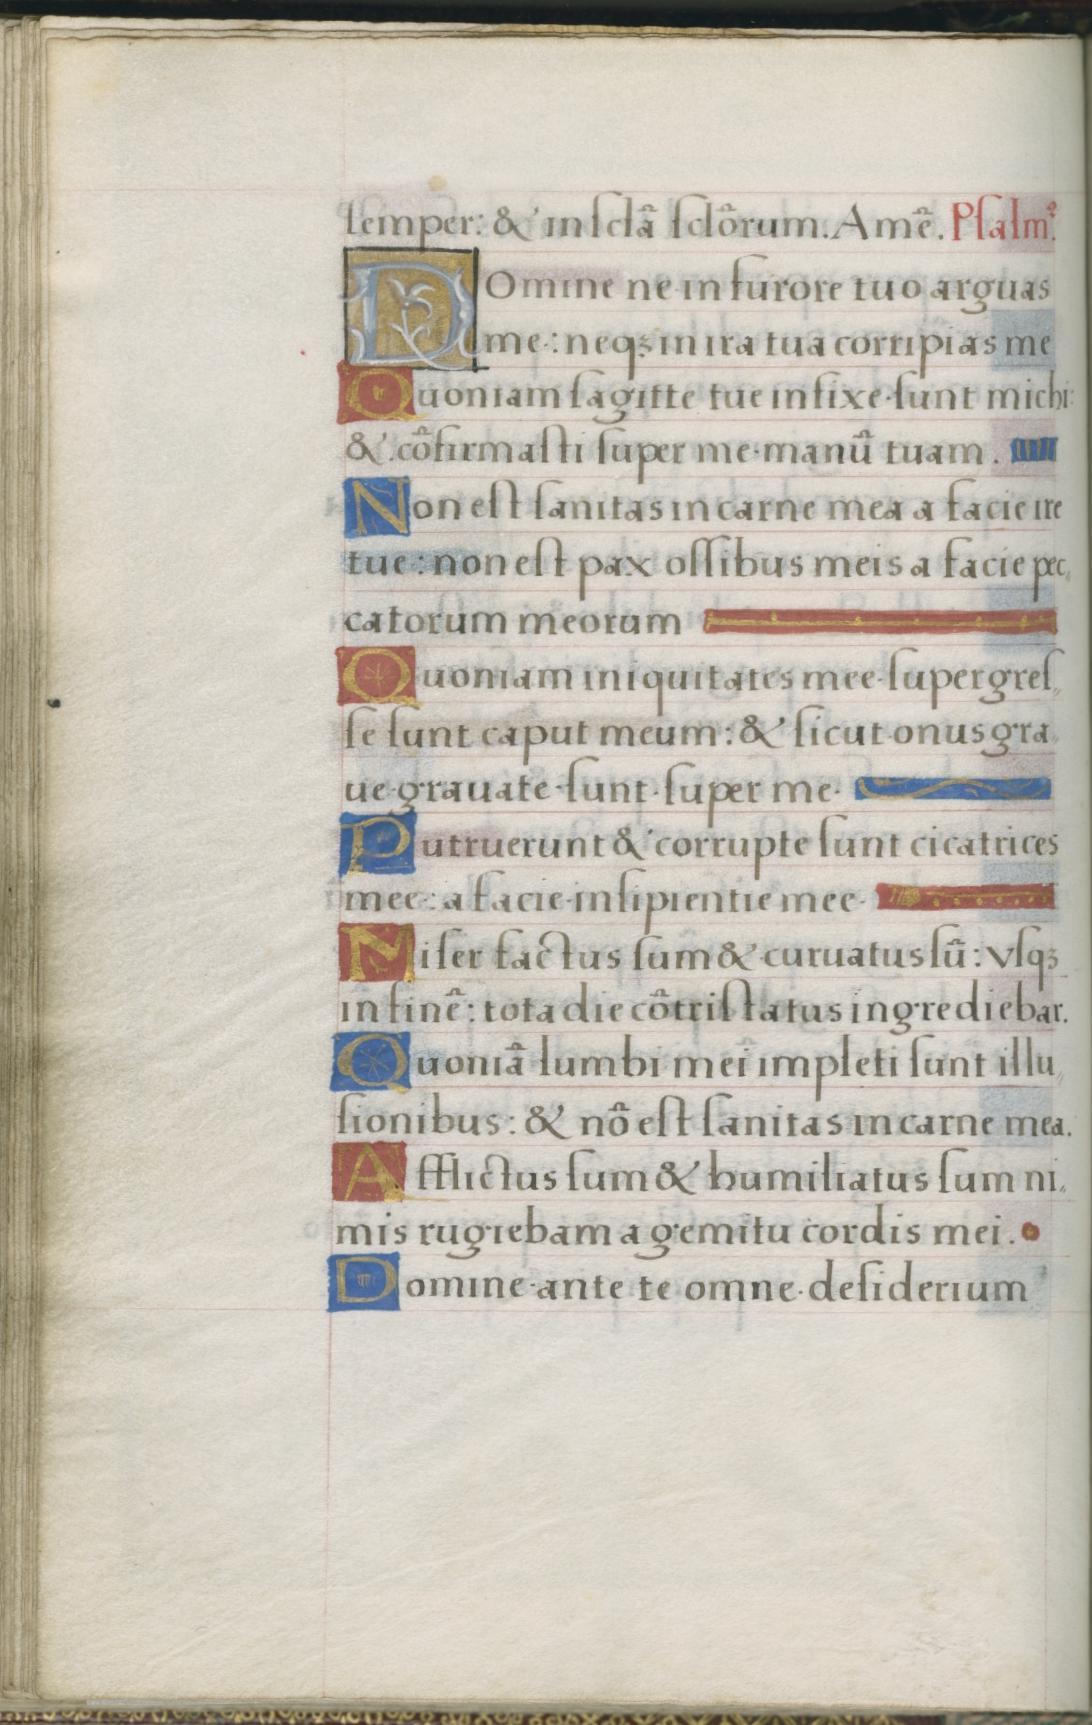 semper: & in sclã sclõrum. Amẽ. Psalm⁹.
Domine ne in furore tuo arguas
me: neqꝫ in ira tua corripias me
Quoniam sagitte tue infixe sunt michi:
& cõfirmasti super me manũ tuam.
Non est sanitas in carne mea a facie ire
tue: non est pax ossibus meis a facie pec,,
catorum meorum
Quoniam iniquitates mee supergres,,
se sunt caput meum: & sicut onus gra,,
ue grauate sunt super me.
Putruerunt & corrupte sunt cicatrices
mee: a facie insipientie mee.
Miser factus sum & curuatus sũ: vsqꝫ
in finẽ: tota die cõtristatus ingrediebar.
Quoniã lumbi mei impleti sunt illu,,
sionibus: & nõ est sanitas in carne mea.
Afflictus sum & humiliatus sum ni,,
mis rugiebam a gemitu cordis mei.
Domine ante te omne desiderium